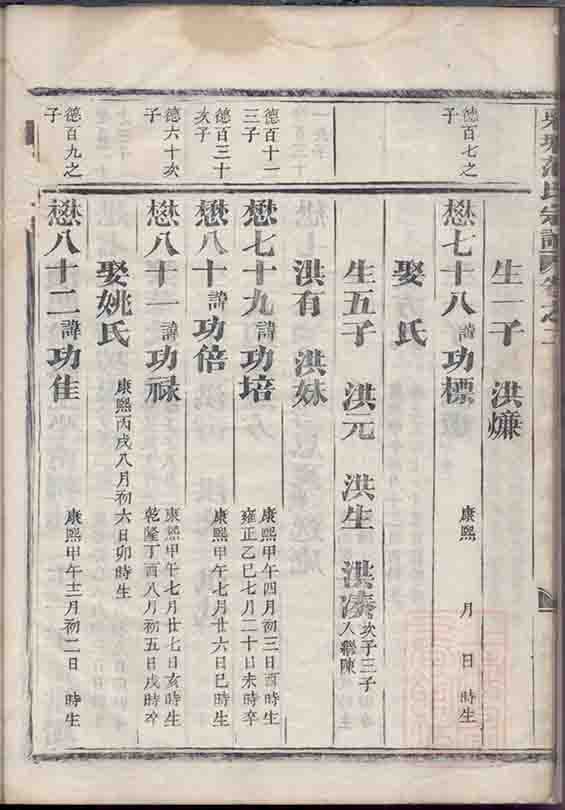 氏宗譜
生一子 洪爊
德百七之
子
懋七十八諱功標 康熙 月 日 時生
娶 氏
生五子 洪元 洪生 洪湊 次子三子
入繼陳
洪有 洪妹
德百十一
三子
懋七十九諱功培 康熙甲午四月初三日酉時生
雍正乙巳七月二十日未時卒
德百三十
次子
懋八十諱功倍 康熙甲午七月廿六日巳時生
德六十次
子
懋八十一諱功祿 康熙甲午七月廿七日亥時生
乾隆丁酉八月初五日戌時卒
娶姚氏 康熙丙戌八月初六日卯時生
德百九之
子
懋八十二諱功佳 康熙甲午十二月初二日 時生